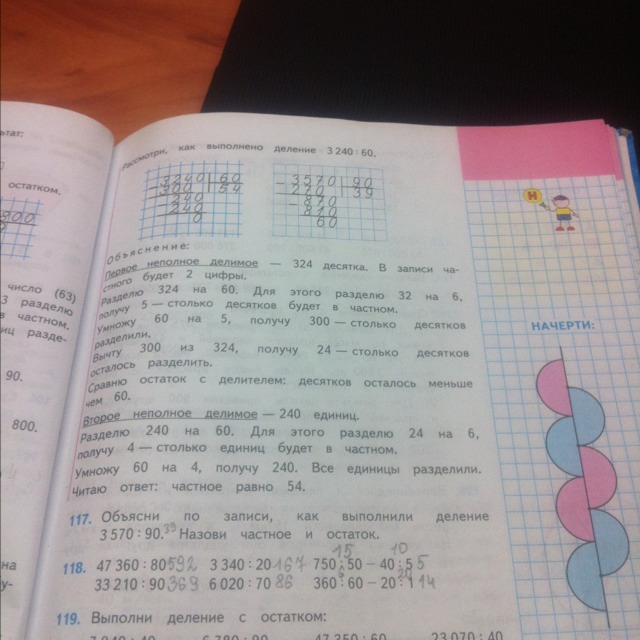 ьтат:
остатком.
число (63)
3 разделю
в частном.
иц разде-
90.
800.
на
у-
Рассмотри, как выполнено деление 3 240 : 60.
3240 60
300 54
240
240
0
3570 90
270 39
870
810
60
Объяснение:
Первое неполное делимое — 324 десятка. В записи ча-
стного будет 2 цифры.
Разделю 324 на 60. Для этого разделю 32 на 6,
получу 5 — столько десятков будет в частном.
Умножу 60 на 5, получу 300 — столько десятков
разделили.
Вычту 300 из 324, получу 24 — столько десятков
осталось разделить.
Сравню остаток с делителем: десятков осталось меньше
чем 60.
Второе неполное делимое — 240 единиц.
Разделю 240 на 60. Для этого разделю 24 на 6,
получу 4 — столько единиц будет в частном.
Умножу 60 на 4, получу 240. Все единицы разделили.
Читаю ответ: частное равно 54.
117. Объясни по записи, как выполнили деление
3 570 : 90. 39 Назови частное и остаток.
15 10
118. 47 360 : 80 592 3 340 : 20 167 750 : 50 – 40 : 5 5
33 210 : 90 369 6 020 : 70 86 360 : 60 – 20 : 1 14
119. Выполни деление с остатком:
47 350 : 60 23 070 : 40
Н
НАЧЕРТИ: